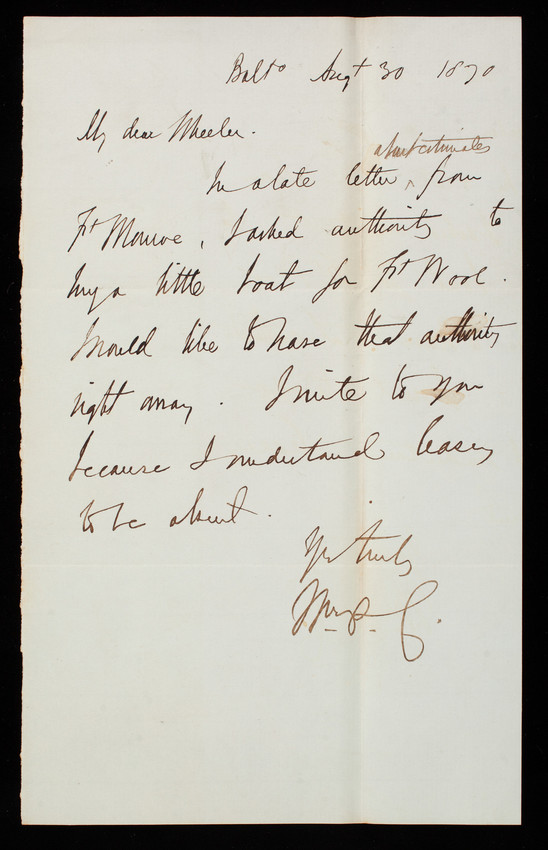 Balto Augt 30 1870
My dear Wheeler.
about estimates
In a late letter ^ from
Ft Monroe, I asked authority to
buy a little boat for Ft Wool.
I would like to have that authority
right away. I write to you
because I understand Casey
to be absent.
Yrs truly
Wm. P. C.